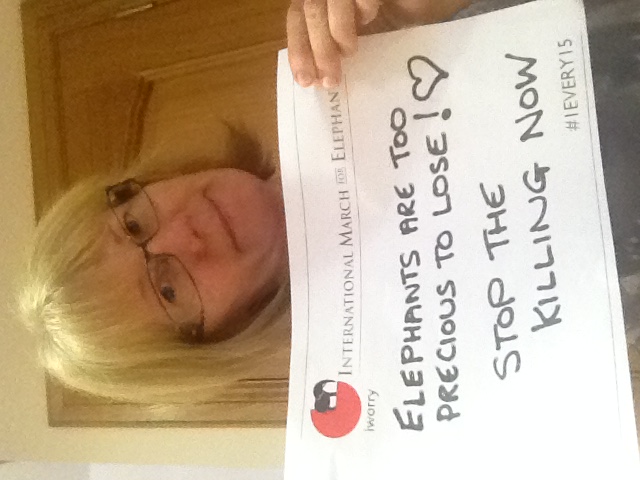 INTERNATIONAL MARCH FOR ELEPHAN
iworry
ELEPHANTS ARE TOO
PRECIOUS TO LOSE! ♡
STOP THE
KILLING NOW
#1EVERY15